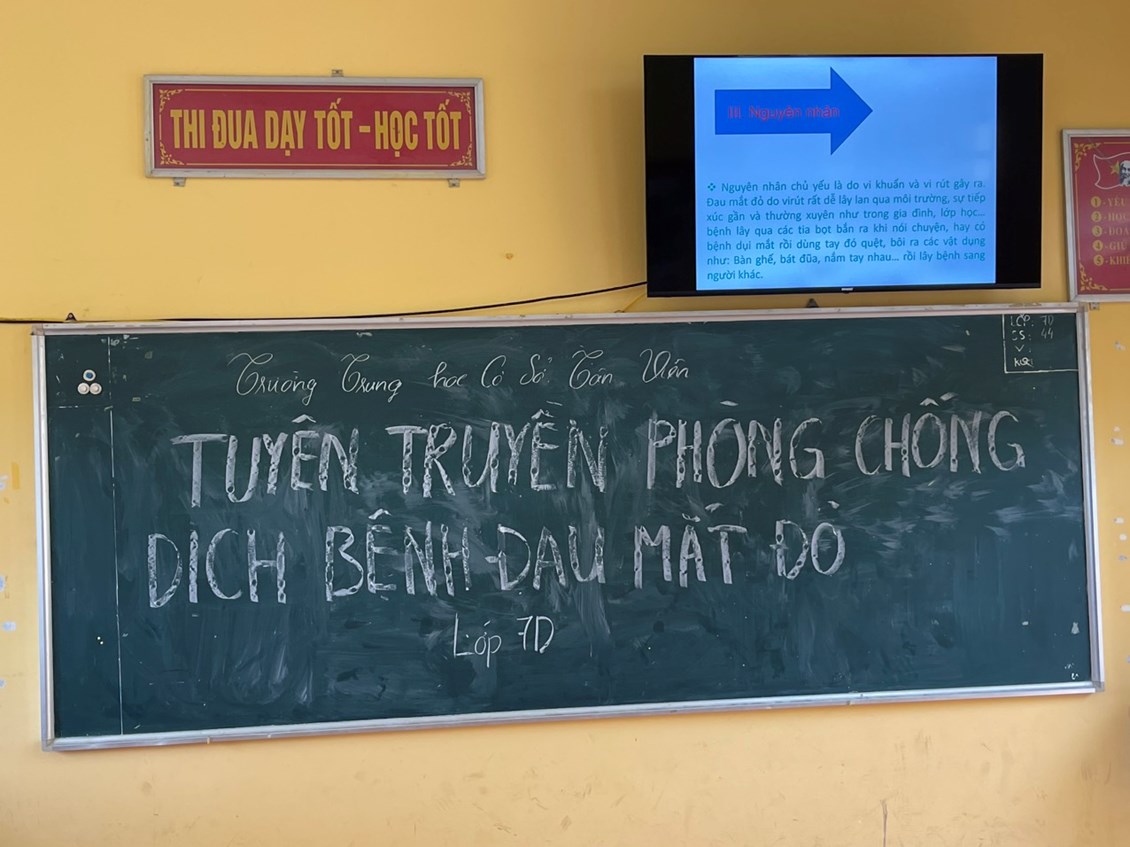 THI ĐUA DẠY TỐT - HỌC TỐT
III Nguyên nhân
❖ Nguyên nhân chủ yếu là do vi khuẩn và vi rút gây ra.
Đau mắt đỏ do virút rất dễ lây lan qua môi trường, sự tiếp
xúc gần và thường xuyên như trong gia đình, lớp học...
bệnh lây qua các tia bọt bắn ra khi nói chuyện, hay có
bệnh dụi mắt rồi dùng tay đó quệt, bôi ra các vật dụng
như: Bàn ghế, bát đũa, nắm tay nhau... rồi lây bệnh sang
người khác.
1
2
3
4
5
LỚP: 7D
SS: 44
V:
Trường Trung học Cơ Sở Tân Viên
TUYÊN TRUYỀN PHÒNG CHỐNG
DỊCH BỆNH ĐAU MẮT ĐỎ
Lớp 7D